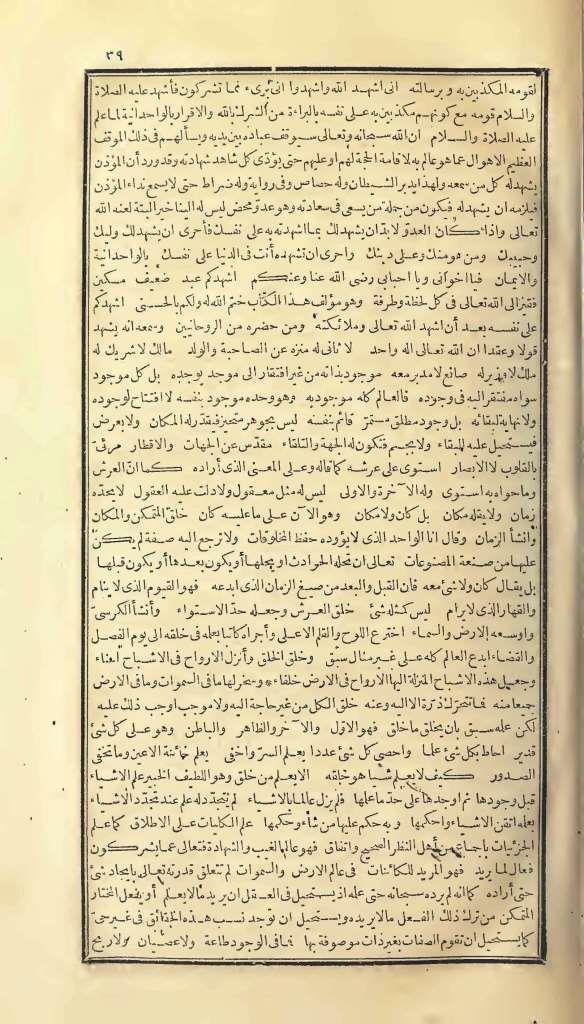 ٣٩
لقومه المكذبين به وبرسالته انى اشهد الله واشهدوا انى برىء مما تشركون فأشهد عليه الصلاة
والسلام قومه مع كونهم مكذبين به على نفسه بالبراءة من الشرك بالله والاقرار بالواحدانية لما علم
عليه الصلاة والسلام ان الله سبحانه وتعالى سيوقف عباده بين يديه ويسألهم فى ذلك الموقف
العظيم الاهوال عما هو عالم به لاقامة الحجة لهم او عليهم حتى يؤدى كل شاهد شهادته وقد ورد أن المؤذن
يشهد له كل من سمعه ولهذا يدبر الشيطان وله حصاص وفى رواية وله ضراط حتى لا يسمع نداء المؤذن
فيلزمه ان يشهد له فيكون من جملة من يسعى فى سعادته وهو عدو محض ليس له الينا خير البتة لعنه الله
تعالى واذا كان العدو لا بد ان يشهد لك بما اشهدته به على نفسك فأحرى ان يشهد لك وليك
وحبيبك ومن هو منك وعلى دينك واحرى ان تشهده أنت فى الدنيا على نفسك بالواحدانية
والايمان فيا اخوانى ويا احبابى رضى الله عنا وعنكم اشهدكم عبد ضعيف مسكين
فقير الى الله تعالى فى كل لحظة وطرفة وهو مؤلف هذا الكتاب ختم الله له ولكم بالحسنى اشهدكم
على نفسه بعد أن اشهد الله تعالى وملائكته ومن حضره من الروحانيين وسمعه انه يشهد
قولا وعقدا ان الله تعالى اله واحد لا ثانى له منزه عن الصاحبة والولد مالك لا شريك له
ملك لا وزير له صانع لا مدبر معه موجود بذاته من غير افتقار الى موجد يوجده بل كل موجود
سواه مفتقر اليه فى وجوده فالعالم كله موجود به وهو وحده موجود بنفسه لا افتتاح لوجوده
ولا نهاية لبقائه بل وجود مطلق مستمر قائم بنفسه ليس بجوهر متحيز فيقدر له المكان ولا بعرض
فيستحيل عليه البقاء ولا بجسم فتكون له الجهة والتلقاء مقدس عن الجهات والاقطار مرئى
بالقلوب لا الابصار استوى على عرشه كما قاله وعلى المعنى الذى أراده كما ان العرش
وما حواه به استوى وله الآخرة والاولى ليس له مثل معقول ولا دلت عليه العقول لا يحده
زمان ولا يقله مكان بل كان ولا مكان وهو الآن على ما عليه كان خلق المتمكن والمكان
وانشأ الزمان وقال انا الواحد الذى لا يؤوده حفظ المخلوقات ولا ترجع اليه صفة لم يكن
عليها من صنعة المصنوعات تعالى ان تحله الحوادث او يحلها أو يكون بعدها أو يكون قبلها
بل يقال كان ولا شئ معه فان القبل والبعد من صيغ الزمان الذى ابدعه فهو القيوم الذى لا ينام
والقهار الذى لا يرام ليس كمثله شئ خلق العرش وجعله حد الاستواء وأنشأ الكرسى
واوسعه الارض والسماء اخترع اللوح والقلم الاعلى وأجراه كاتبا بعلمه فى خلقه الى يوم الفصل
والقضاء ابدع العالم كله على غير مثال سبق وخلق الخلق وأنزل الارواح فى الاشباح أمناء
وجعل هذه الاشباح المنزلة اليها الارواح فى الارض خلفاء وسخر لها ما فى السموات وما فى الارض
جميعا منه فما تتحرك ذرة الا اليه وعنه خلق الكل من غير حاجة اليه ولا موجب اوجب ذلك عليه
لكن علمه سبق بان يخلق ما خلق فهو الاول والآخر والظاهر والباطن وهو على كل شئ
قدير احاط بكل شئ علما واحصى كل شئ عددا يعلم السر واخفى يعلم خائنة الاعين وما تخفى
الصدور كيف لا يعلم شيأ هو خلقه الا يعلم من خلق وهو اللطيف الخبير علم الاشياء
قبل وجودها ثم اوجدها على حد ما علمها فلم يزل عالما بالاشياء لم يتجدد له علم عند تجدد الاشياء
بعلمه اتقن الاشياء واحكمها وبه حكم عليها من شاء وحكمها علم الكليات على الاطلاق كما علم
الجزئيات باجماع من أهل النظر الصحيح واتفاق فهو عالم الغيب والشهادة فتعالى عما يشركون
فعال لما يريد فهو المريد للكائنات فى عالم الارض والسموات لم تتعلق قدرته تعالى بايجاد شئ
حتى أراده كما انه لم يرده سبحانه حتى علمه اذ يستحيل فى العقل ان يريد ما لا يعلم أو يفعل المختار
المتمكن من ترك ذلك الفعل ما لا يريده ويستحيل ان توجد نسب هذه الحقائق فى غير حى
كما يستحيل ان تقوم الصفات بغير ذات موصوفة بها فما فى الوجود طاعة ولا عصيان ولا ربح